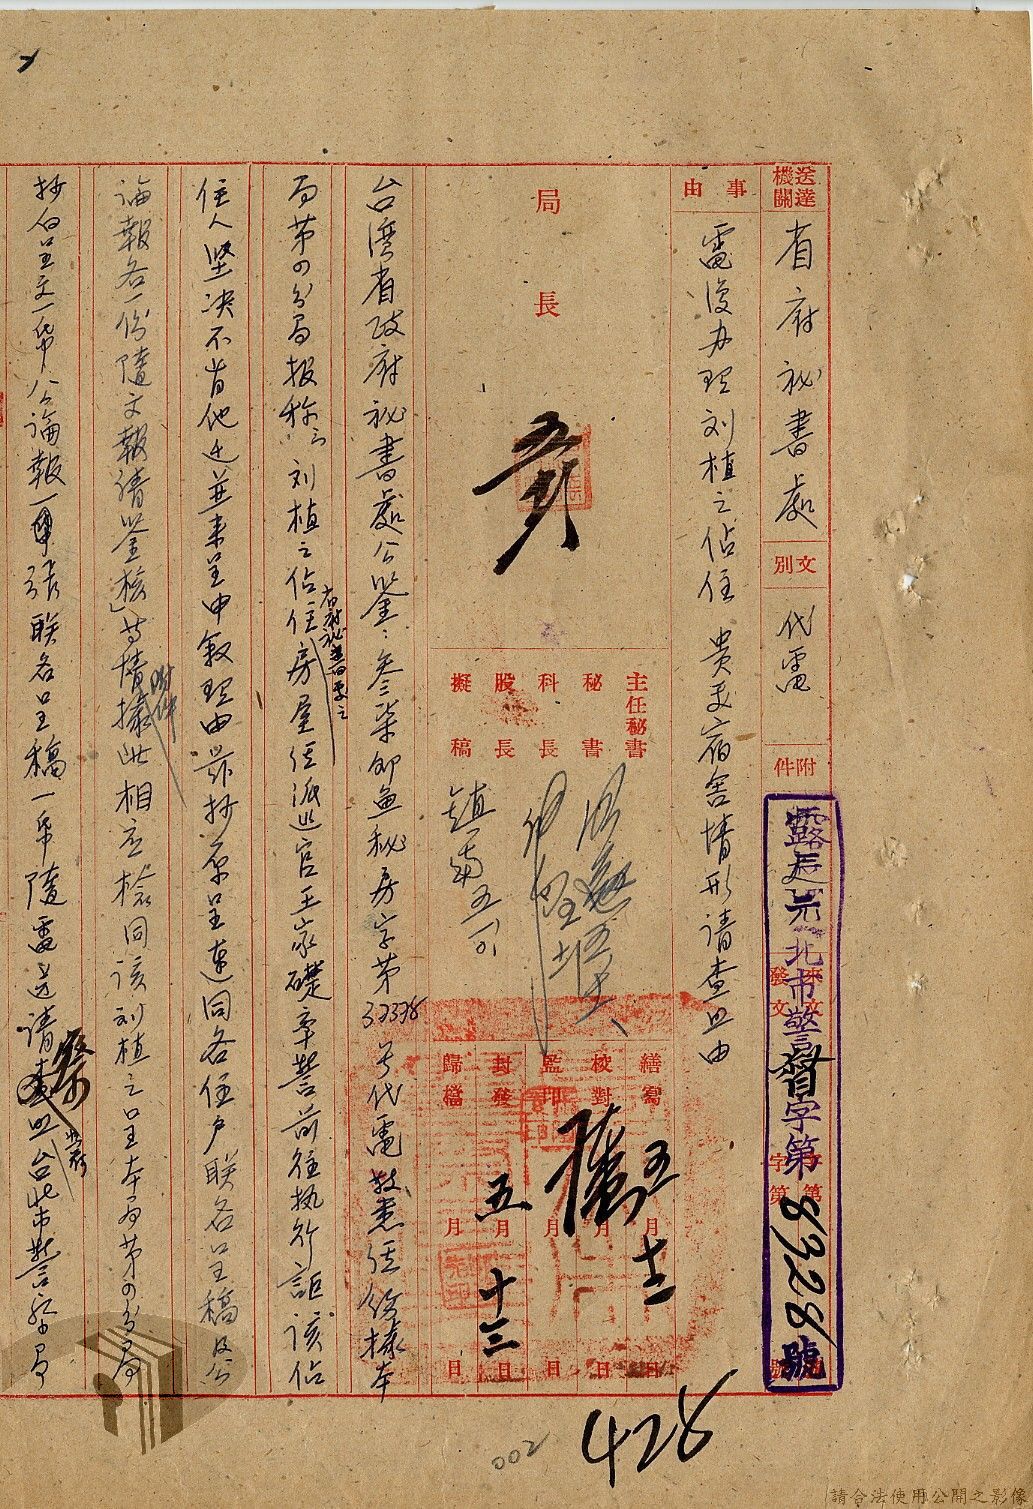 送達機關
省府祕書處
文別
代電
附件
北市警督字第8328號
事由
電復办理刘植之佔住貴处宿舍情形请查照由
局長
主任秘書
秘書
科長
股長
擬稿
五
繕寫 五月十二日
校對 月 日
監印 月 日
封發 五月十三日
歸檔 月 日
台湾省政府祕書處公鑒：叁柒卯魚秘房字第37378号代電敬悉经飭據本
局第四分局报称：「刘植之佔住省府祕書處之房屋经派巡官王家礎率警前往执行詎该佔
住人坚决不肯他迁並来呈申叙理由兹抄原呈連同各住户联名呈稿及公
論報各一份隨文報请鉴核」等情附件據此相应檢同该刘植之呈本局第四分局
抄白呈文一帋公論報一張联名呈稿一帋隨電送请察照台北市警察局
428
002
請合法使用公開之影像